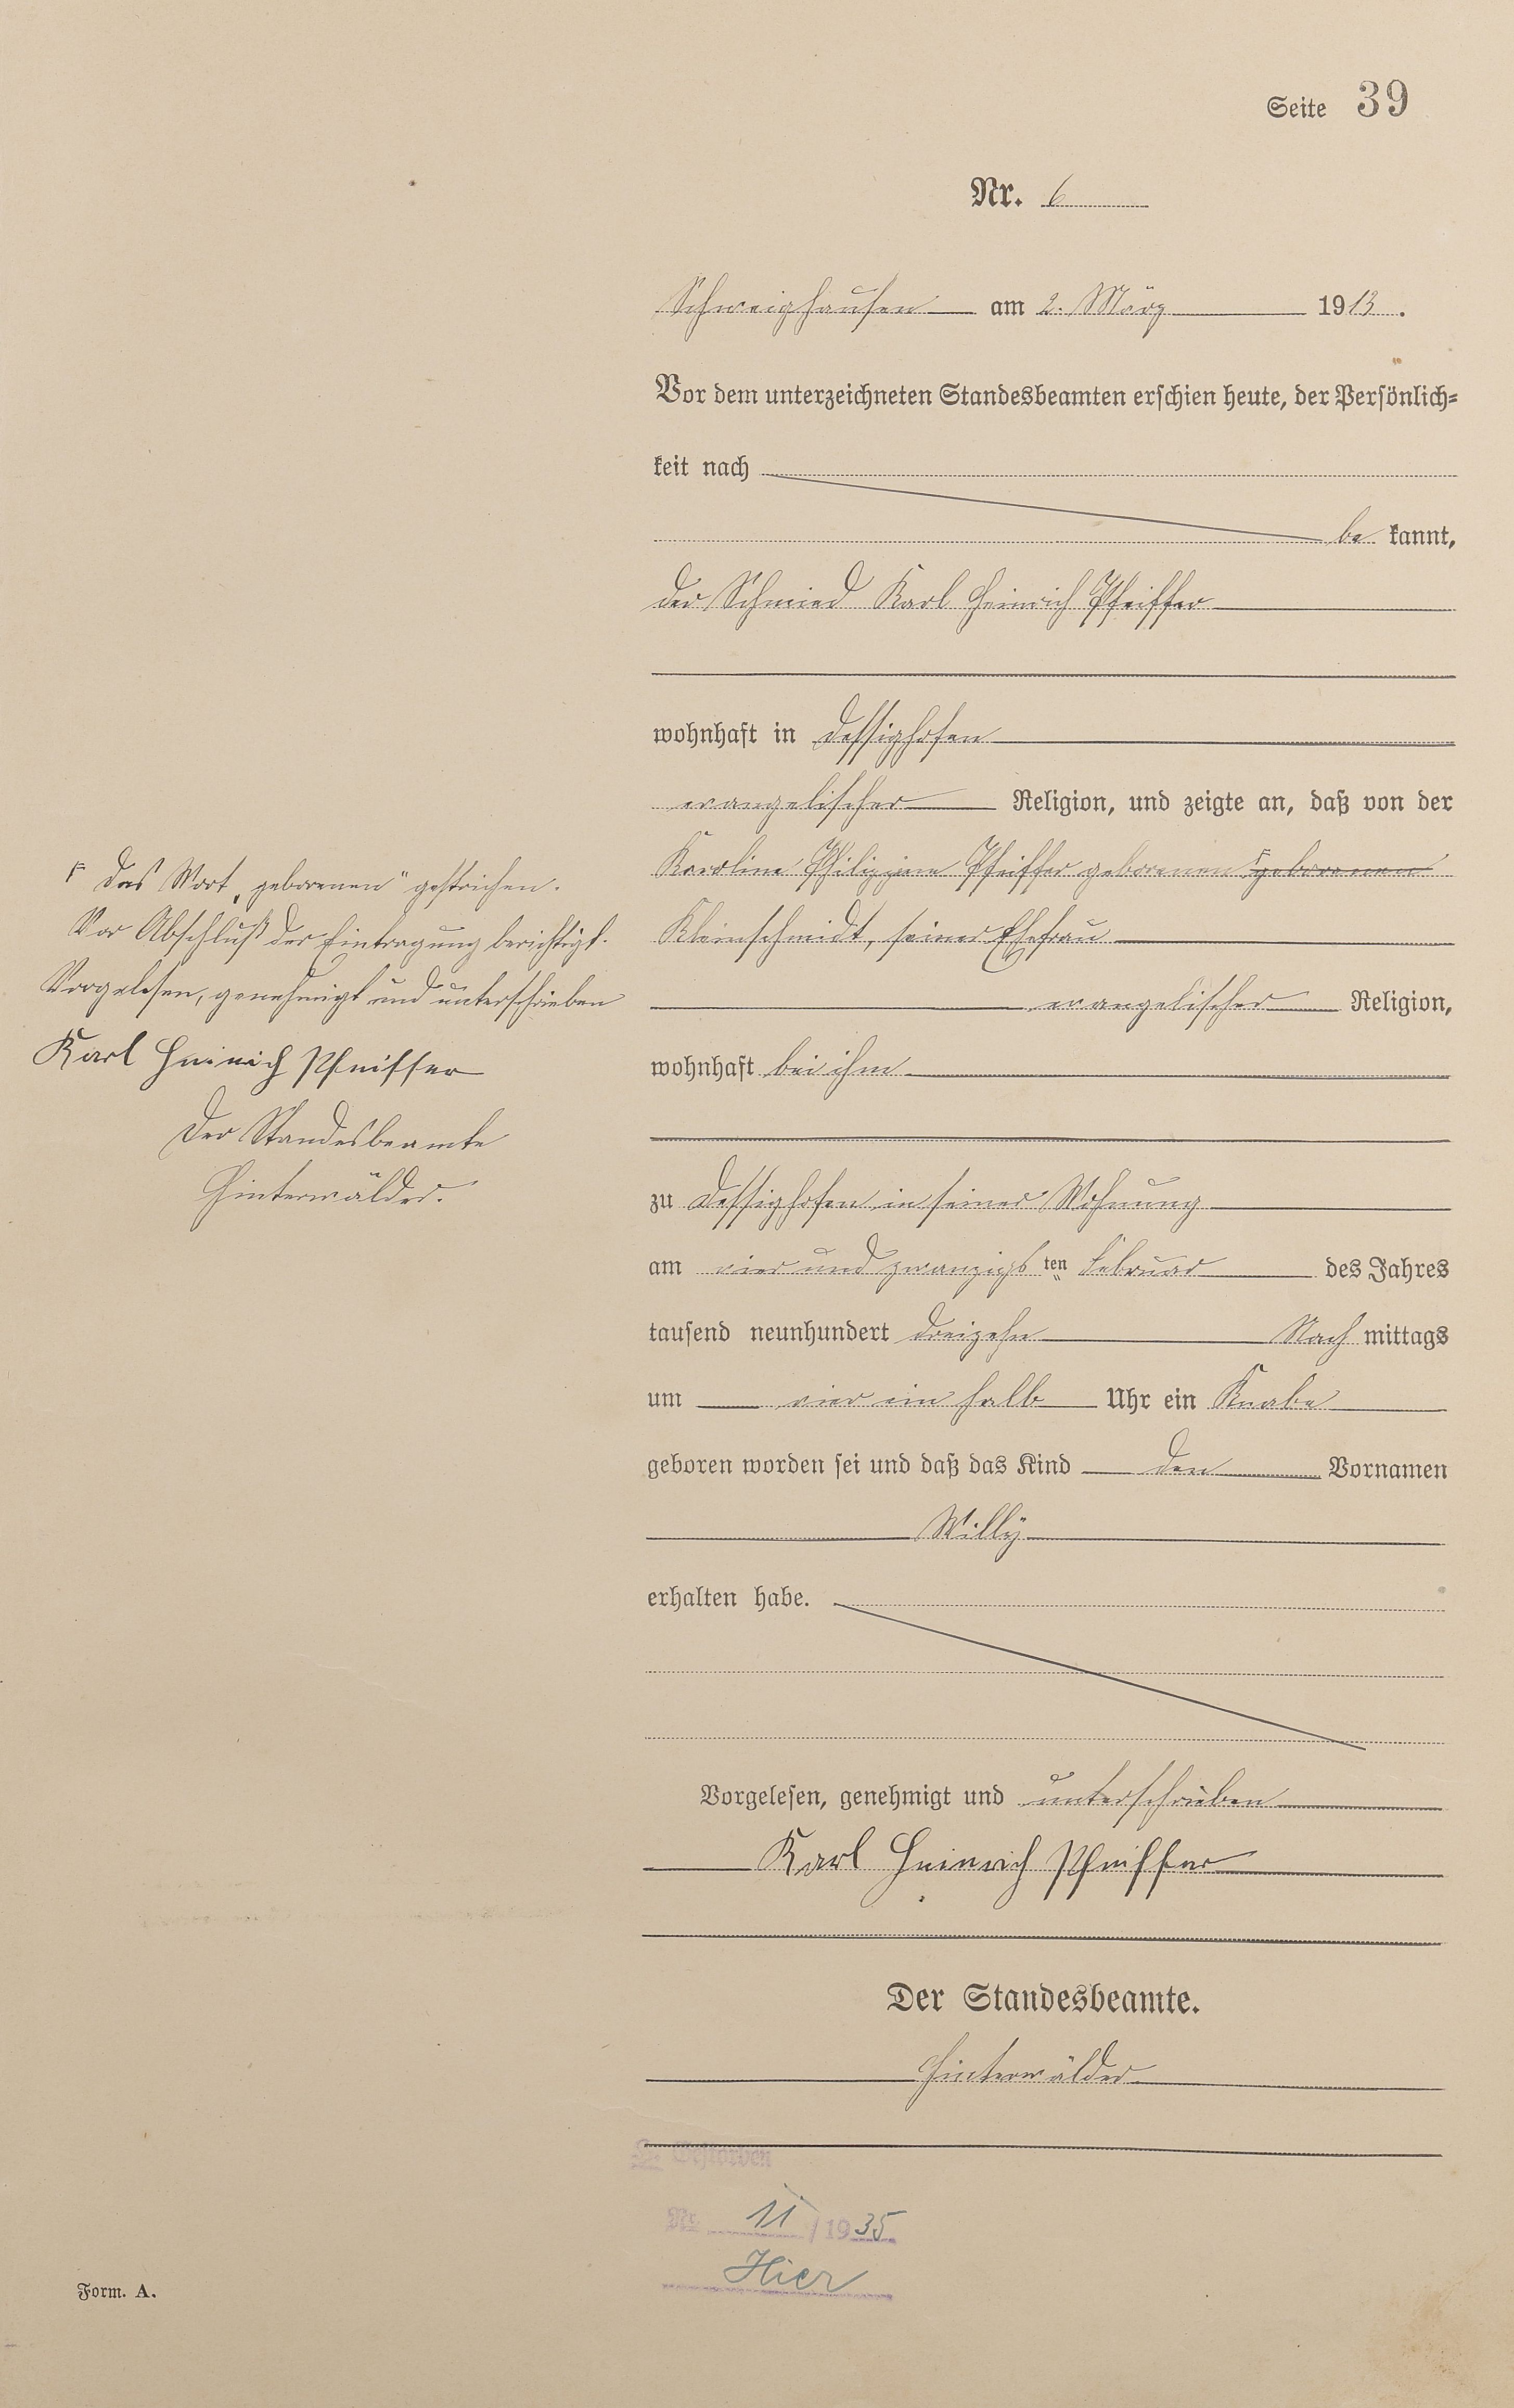 Seite 39
Nr. 6
Schweighausen am 2. März 1913.
Vor dem unterzeichneten Standesbeamten erschien heute, der Persönlich=
keit nach
be kannt,
der Schmied Karl Heinrich Pfeiffer
wohnhaft in Dessighofen
evangelischer Religion, und zeigte an, daß von der
Karoline Philippine Pfeiffer geborenen geborenen
Kleinschmidt, seiner Ehefrau
evangelischer Religion,
wohnhaft bei ihm
zu Dessighofen in seiner Wohnung
am vier und zwanzigsten Februar des Jahres
tausend neunhundert dreizehn Nach mittags
um vier ein halb Uhr ein Knabe
geboren worden sei und daß das Kind den Vornamen
Willy
erhalten habe.
Vorgelesen, genehmigt und unterschrieben
Karl Heinrich Pfeiffer
Der Standesbeamte.
Hinterwälder
Gestorben
Nr. 11/1935
Hier
Das Wort „geborenen" gestrichen.
Vor Abschluß der Eintragung berichtigt.
Vorgelesen, genehmigt und unterschrieben
Karl Heinrich Pfeiffer
Der Standesbeamte
Hinterwälder.
Form. A.